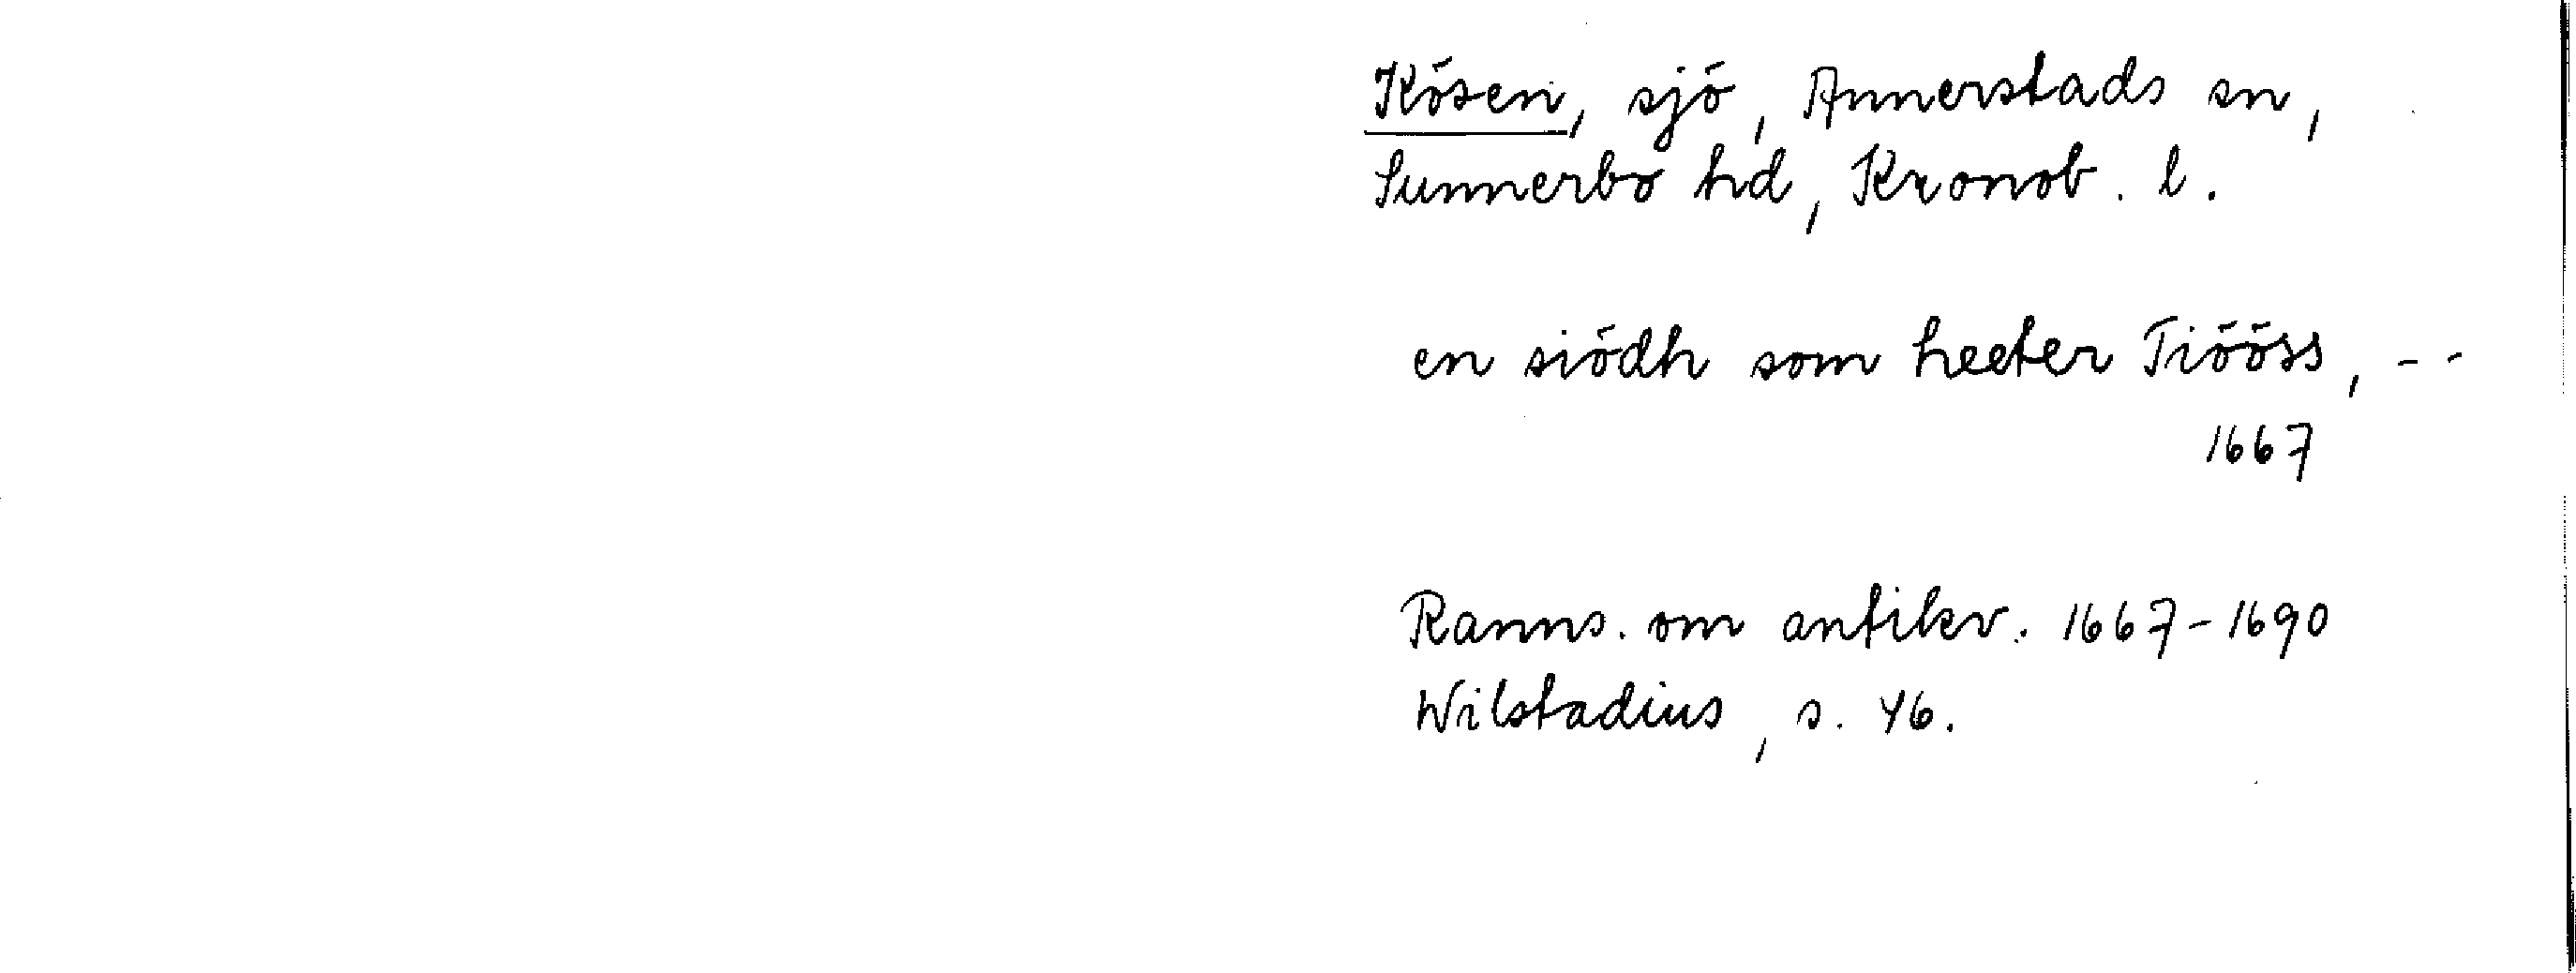 Kösen, sjö, Annerstads sn,
Sunnerbo hd, Kronob. l.
en siödh som heeter Tiööss, --
1667
Ranns. om antikv. 1667-1690
Wilstadius, s. 46.